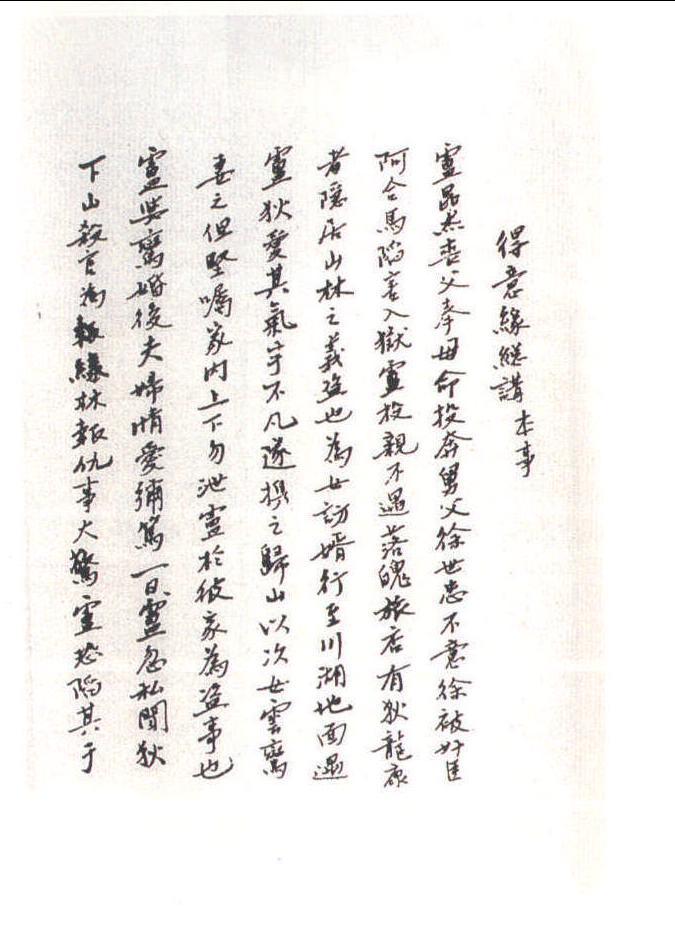 得意緣總講 本事
盧昆杰喪父奉母命投奔舅父徐世忠不意徐被奸臣
阿合馬陷害入獄盧投親不遇落魄旅店有狄龍康
者隱居山林之義盜也為女訪婿行至川湖地面遇
盧狄愛其氣宇不凡遂携之歸山以次女雲鸞
妻之但堅囑家内上下勿泄盧於彼家為盜事也
盧與鸞婚後夫婦情愛彌篤一日盧忽私聞狄
下山殺官為綠林報仇事大驚盧恐陷其于